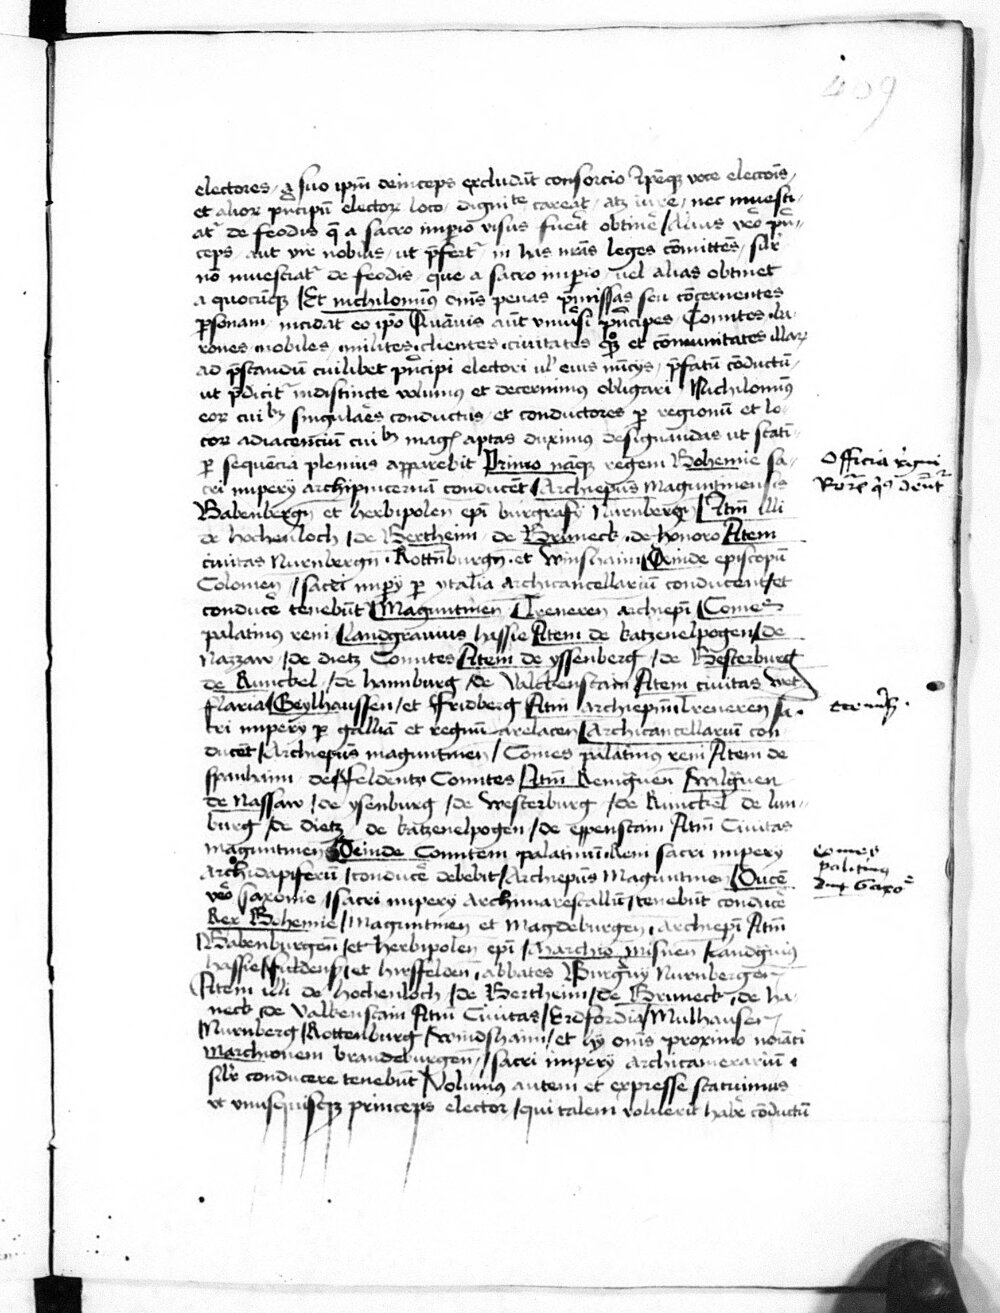 409
electores, q suo ipm deinceps excludūt consorcio ipeq voce electōis,
et alior pncipū elector loco, dignite careat, atq iure, nec investi-
at' de feodis q a sacro imperio visus fuerit obtinē / Alius vero prī-
ceps, aut vir nobilis, ut pfert, in has nrās leges cōmittēs, silr
nō investiat' de feodis, que a sacro imperio, vel alias obtinet
a quocūq / Et nichilominus om̄s penas pmissas seu cōcernentes
psonam, incidat eo ipo Quāvis aut vniūsi pncipes, Comites, ba-
rones, nobiles, milites, clientes, civitates, et comunitates illarq
ad pstandū cuilibet pncipi electori ul' eius nūcys, pfatū cōductū,
ut pdicit' indistincte volumus et decernimus obligari Nichilominus
eor cuibz singulares conductus, et conductores p regionū et lo-
cor adiacenciū cuibz mag aptas duximus designandas ut stati-
p sequēcia plenius apparebit Primo nāq regem Bohemie sa-
cri impery archipincernam conducēt / Archiepus Maguntinensis
Babenbergn et herbipolen epi burgrafy Nurnbergn / Itm illi
de Hochenloch / de Bertheim, de Bruneck, de honoro Item
civitas Nurnbergn, Rottnburgn, et Winshaim / Deinde episcopū
Colonien, / sacri impery p ytalia Archicancellariū conducent / et
conducē tenebūt / Maguntinen / Treveren archiepi / Comes
palatinus reni / Landgravius hassie Item de katzenelpogen / de
Nazzaw / de dietz Comites Item de yssenberg / de Westerburg
de Runckel / de hannburg / de Valckenstain Item civitas wet-
flaria / Geylhaussen / et Fridberg Itm archiepm Treveren sa-
cri impery p galliā et regnū arelacen / Archicancellariū con-
ducēt / Archiepus maguntinen / Comes palatinus reni Item de
spanhaim, de Feldentz Comites Itm Reniguen / wilgūen
de Nassaw / de ysenburg / de Westerburg / de Runckel de lun-
burg / de dietz, de katzenelpogen / de eppenstain Itm Civitas
maguntinen / Deinde Comitem palatinū Reni sacri impery
Archidapiferū / conducē debebit / Archiepus Maguntinen / Ducē
vero saxonie / sacri impery archimarescallū / tenebūt conducē
Rex Bohemie / Maguntinen et Magdeburgen, Archiepi Itm
Babenburgen / et herbipolen epi / Marchio misnen / Landgūius
hassie / Fuldens / et hirsfelden, abbates Burgūy Nurnbergen
Item illi de hochenloch / de Bertheim / de Bruneck, de ha-
neck de Valkenstain Itm Civitas / Erdfordia / Mulhausen
Nurnberg / Rottenburg / windshaim / et hy om̄s proximo noiati
Marchionem brandeburgen, / sacri impery archicamerariū,
silr conducere tenebūt Volumus autem et expresse statuimus
vt vnusquisqz princeps elector / qui talem voluerit habē cōductū
Officia
Comes
palatinus